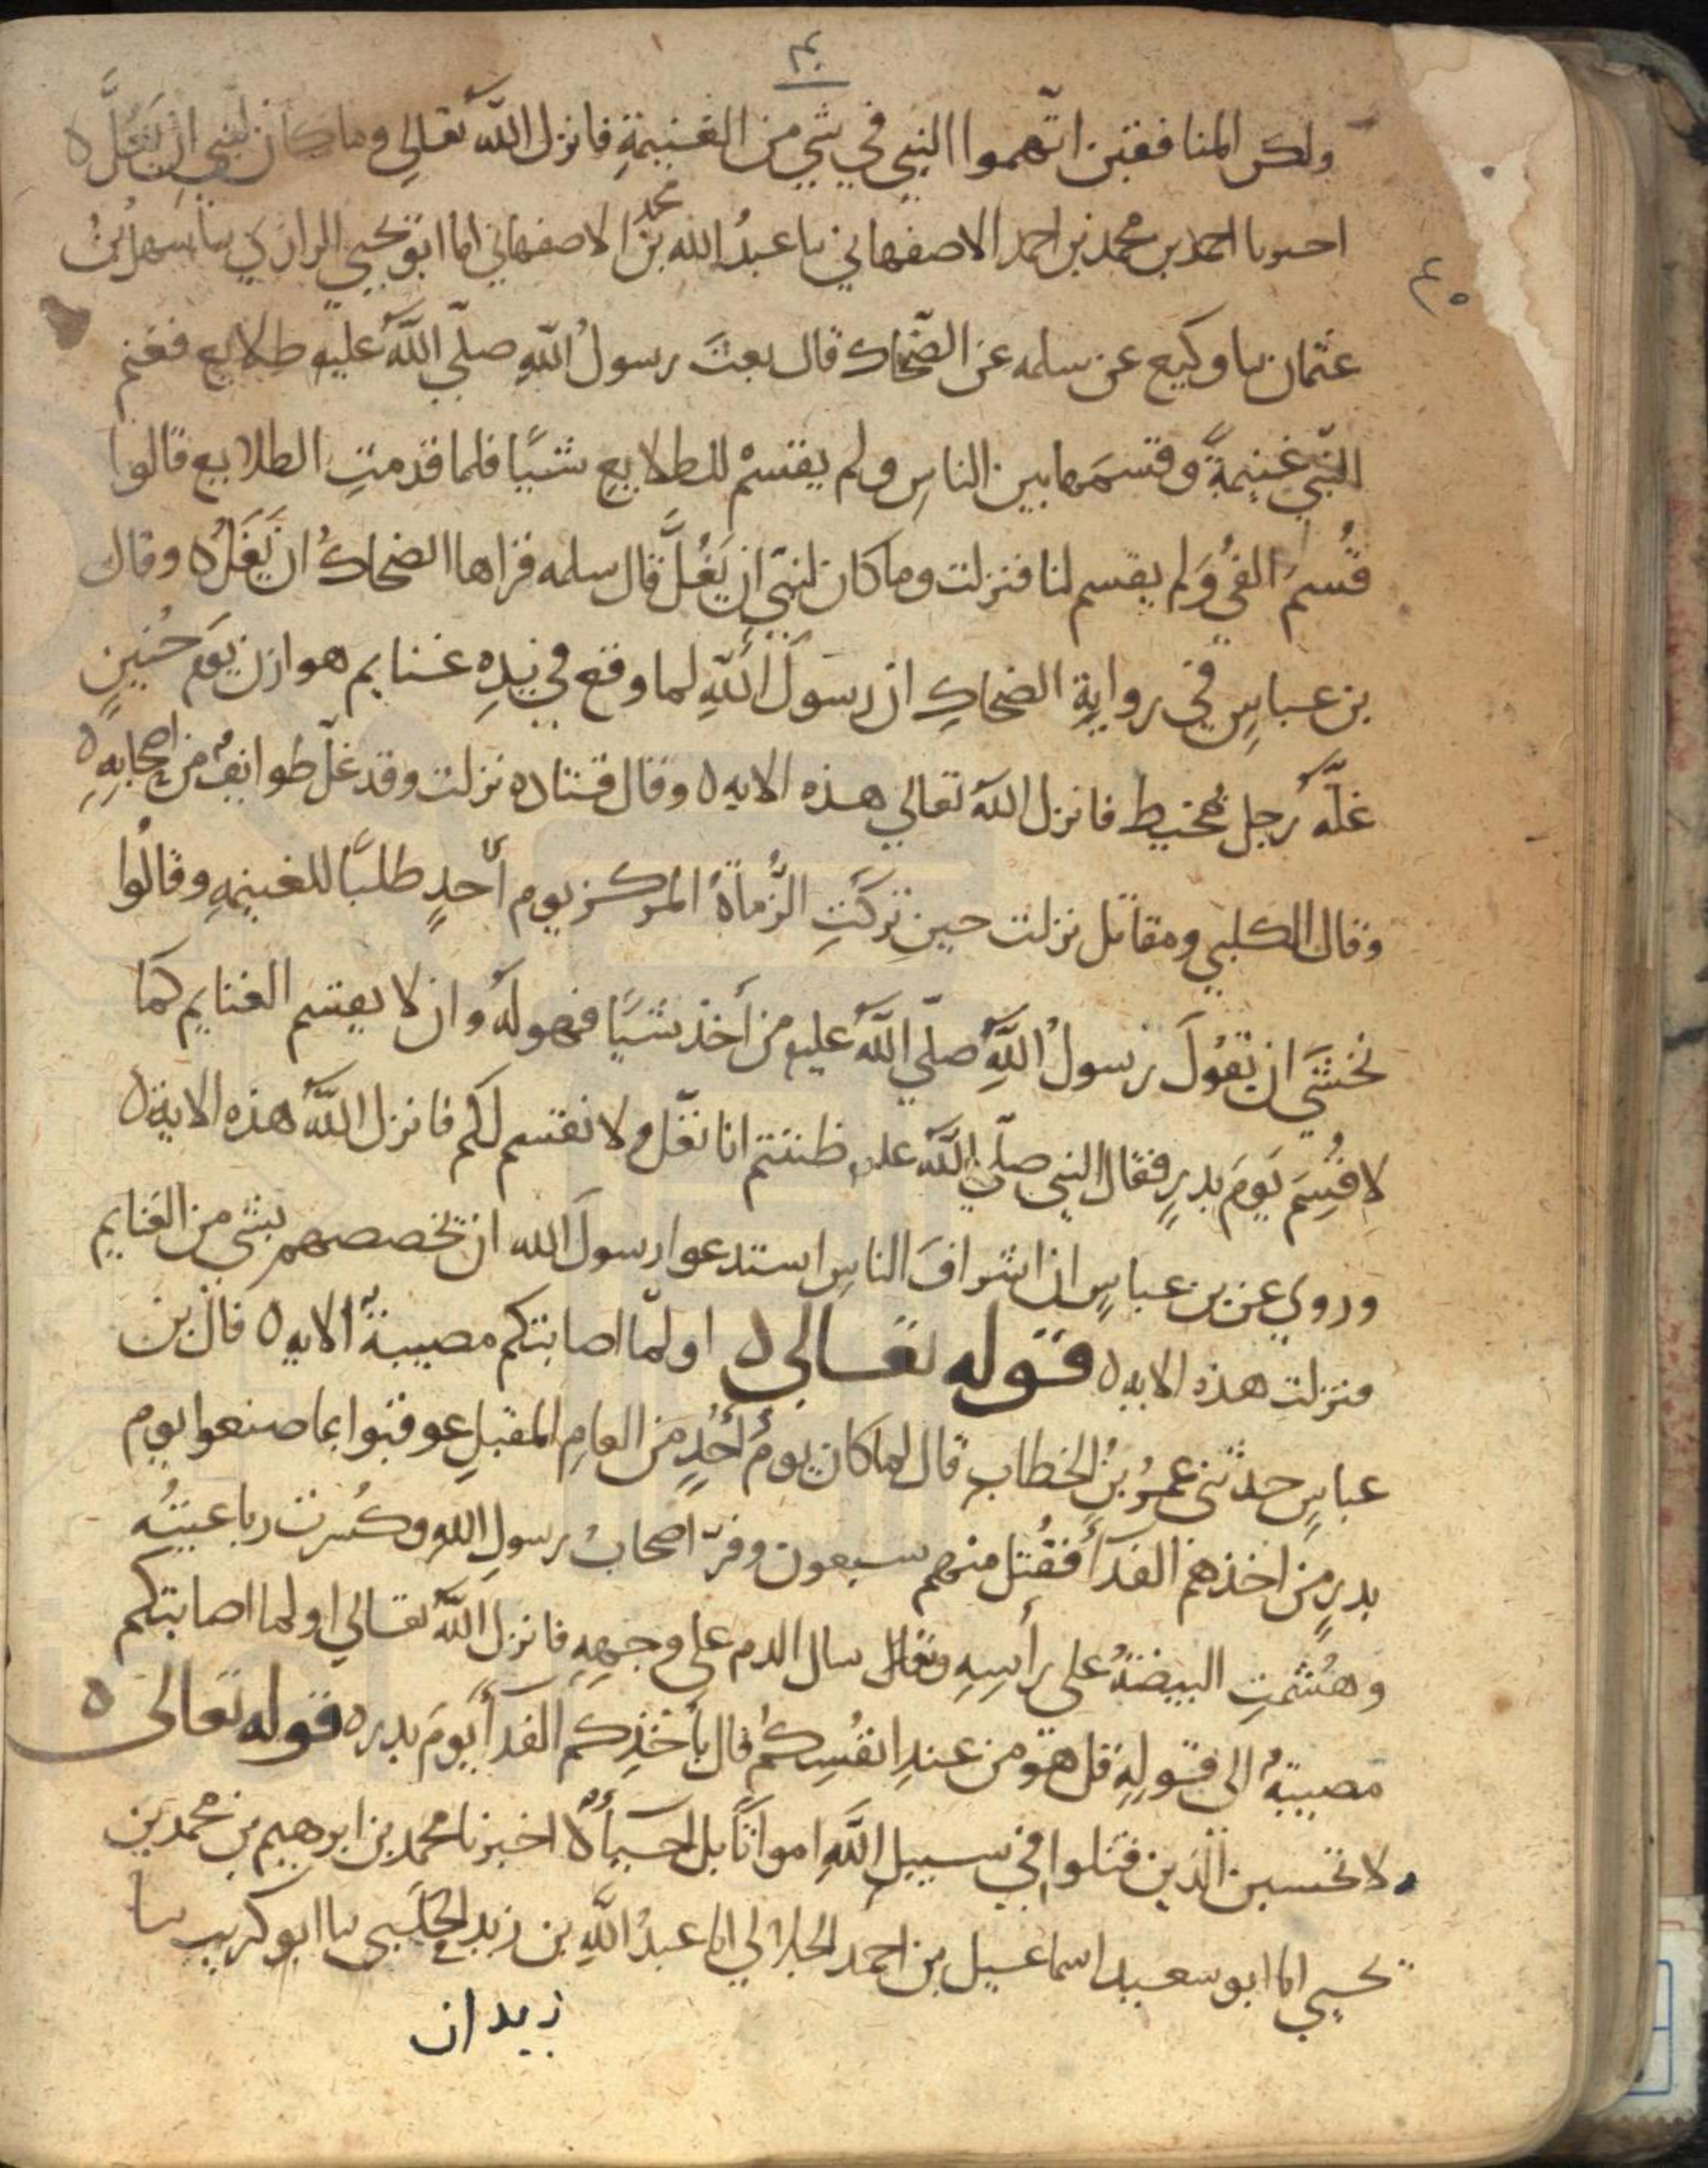 ولكن المنافقين اتّهموا النبي في شي من الغنيمةِ فانزل اللّٰه تعالي وما كان لنبي ان يَغُلَّ ه
احبرنا احمد بن محمد بن احمد الاصفهاني نا عبدُ الله بنُ محمد الاصفهاني انا ابو يحيي الرازي نا سهل بنُ
٤٠
عثمان نا وكيع عن سلمه عن الضّحاك قال بعثَ رسولُ اللّٰهِ صلّي اللّٰهُ عليه طلايع فغنم
النّبيّ غنيمةً وقسمَها بين الناسِ ولم يقسمْ للطلايعِ شيًا فلما قدمتِ الطلايع قالوا
قُسمَ الفئُ وَلم يقسم لنا فنزلت وما كان لنبيّ ان يَغُلَّ قال سلمه قراها الضحاكُ ان يَغُلَّ ه وقال
بن عباسٍ في روايةِ الضحاكِ ان رسولَ اللّٰهِ لما وقع في يدِهِ غنايم هوازن يوَم حُنينٍ
غلَّهُ رجل بمخيط فانزل اللّٰه تعالي هذه الايه ه وقال قتاده نزلت وقد غلّ طوايفُ من اصحابِهِ ه
وقال الكلبي ومقاتل نزلت حين تركتِ الرُّماةُ المركز يوم أُحدٍ طلبًا للغنيمهِ وقالُوا
نخشَي ان يَقولَ رسولُ اللّٰهِ صلّي اللّٰهُ عليه من أخذ شيًا فهو لهُ وان لا يقسم الغنايم كما
لا قُسِمَ يَومَ بدرٍ فقال النبي صلّي اللّٰه عليه ظننتم انا نغُل ولا نقسم لكم فانزل اللّٰهُ هذه الاية ه
وروي عن بن عباسٍ ان اشرافَ الناسِ استدعوا رسولَ الله ان يخصصهم بشي من الغنايم
فنزلت هذه الايه ه قوله تعالي ه اولمّا اصابتكم مصيبةٌ الايه ه قال بن
عباسٍ حدثني عمرُ بنُ الخطاب قال لما كان يومُ أُحُدٍ من العامِ المقبلِ عوقبوا بما صنعوا يوم
بدرٍ من اخذهم الفدأ فقُتل منهم سبعون وفرّ اصحابُ رسولِ اللّٰهِ وكُسرت رباعيتُه
وهُشمتِ البيضةُ علي رأسِهِ وسال الدم علي وجهِهِ فانزل اللّٰهُ تعالي اولما اصابتكم
مصيبةٌ الي قولِهِ قل هوَ من عندِ انفُسِكُم قال بأَخْذِكم الفدأ يَومَ بدر ه قوله تعالى ه
ولا تحسبن الّذين قتلوا في سبيلِ اللّٰهِ امواتًا بل احيأٌ ه اخبرنا محمد بن ابرهيم بن محمد بن
يحيي انا ابو سعيد اسماعيل بن احمد الخلالي انا عبدُ اللّٰهِ بن زيد البجلي نا ابو كريب نا
زيدان